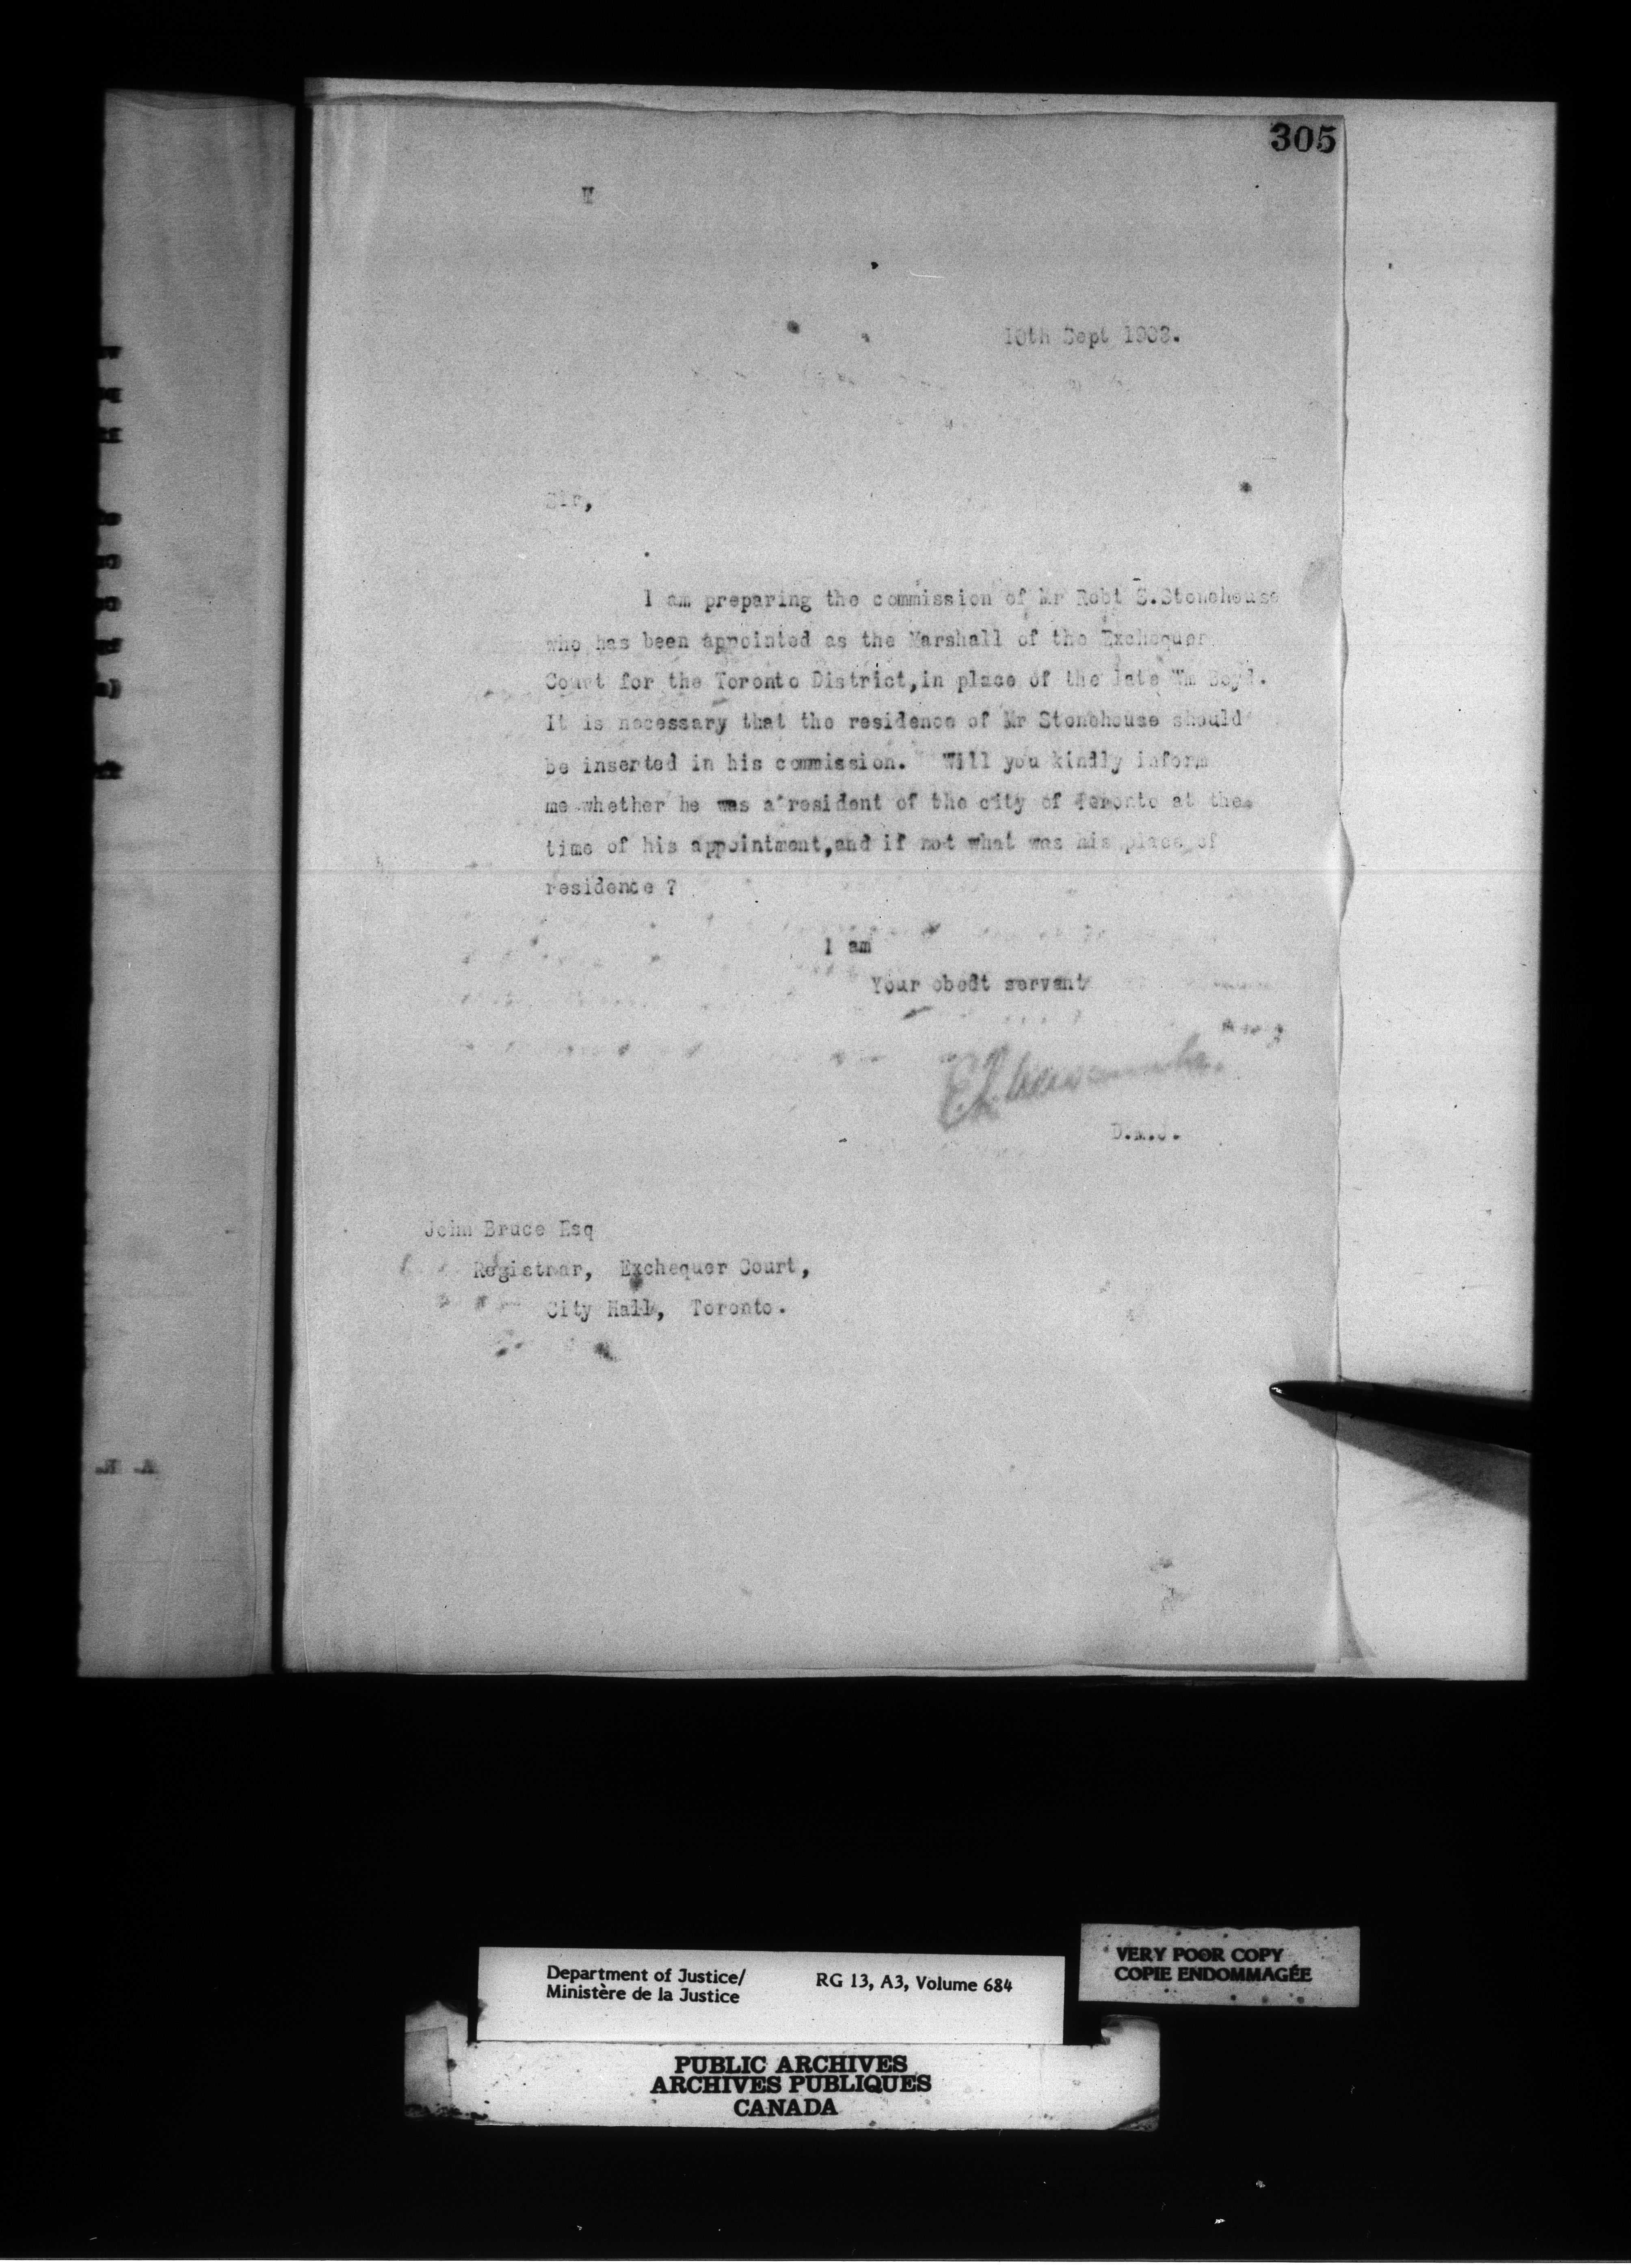 305
W
10th Sept 1903.
Sir,
I am preparing the commission of Mr Robt S.Stonehouse
who has been appointed as the Marshall of the Exchequer
Court for the Toronto District,in place of the late Wm Boyd.
It is necessary that the residence of Mr Stonehouse should
be inserted in his commission. Will you kindly inform
me whether he was a resident of the city of Toronto at the
time of his appointment,and if not what was his place of
residence ?
I am
Your obedt servant
E.L. Newcombe.
D.M.J.
John Bruce Esq
Registrar, Exchequer Court,
City Hall, Toronto.
Department of Justice/
Ministère de la Justice
RG 13, A3, Volume 684
VERY POOR COPY
COPIE ENDOMMAGÉE
PUBLIC ARCHIVES
ARCHIVES PUBLIQUES
CANADA